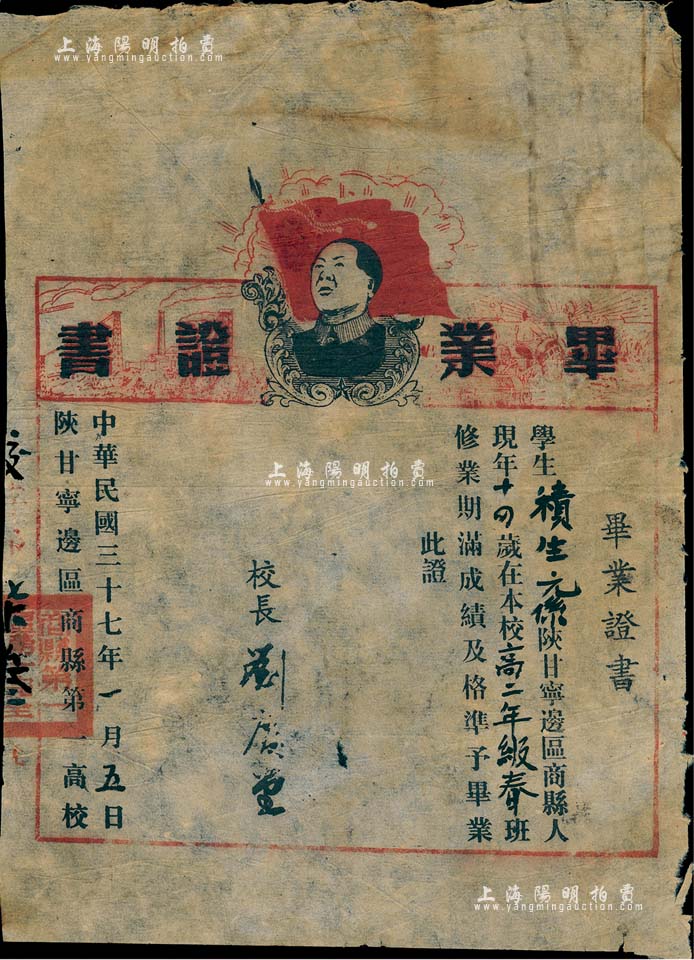 上海陽明拍賣
www.yangmingauction.com
畢業證書
畢業證書
學生積生元係陝甘寧邊區商縣人
現年十四歲在本校高二年級春班
修業期滿成績及格準予畢業
此證
校長 劉廣堂
中華民國三十七年一月五日
陝甘寧邊區商縣第一高校
上海陽明拍賣
www.yangmingauction.com
上海陽明拍賣
www.yangmingauction.com